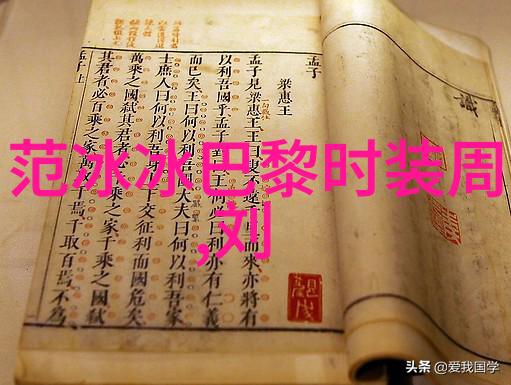 范冰冰巴黎时装周
,刘
識
孟子
梁惠王
孟子見梁惠王王曰叟不遠千里而來亦將有
以利吾國乎孟子對曰王何必曰利亦有仁義
而已矣王曰何以利吾國大夫曰何以利吾家
士庶人曰何以利吾身上下交征利而國危矣
萬乘之國弑其君者
其君者必百乘之家萬取千焉千取百焉不爲
孟子上
头条 @爱我国学